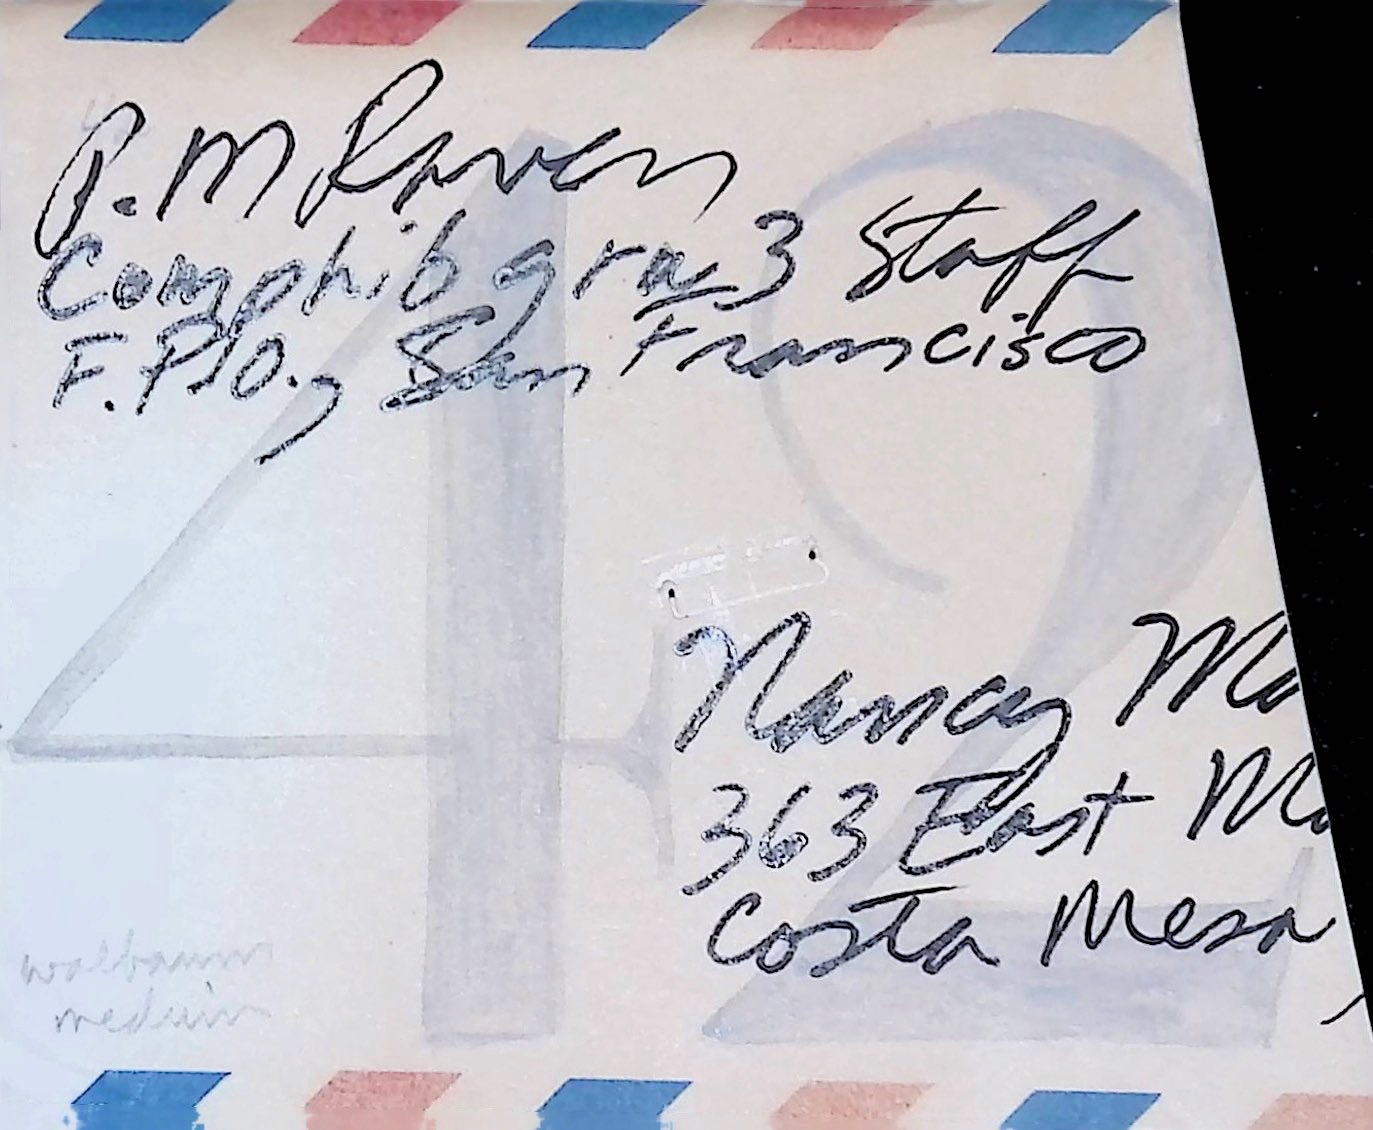 P. M Raven
Comphibgru 3 Staff
F.P.O., San Francisco
42
Nancy
363 East
Costa Mesa,
walbaum
medium